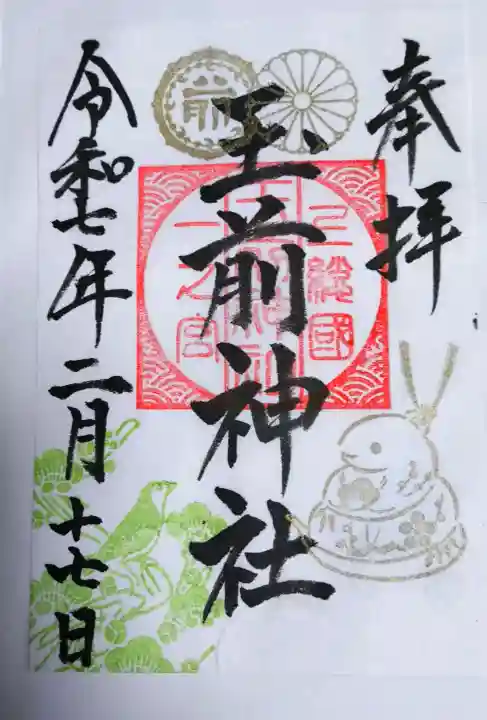 奉拝
上總國
玉前神社
一之宮
令和七年二月十七日